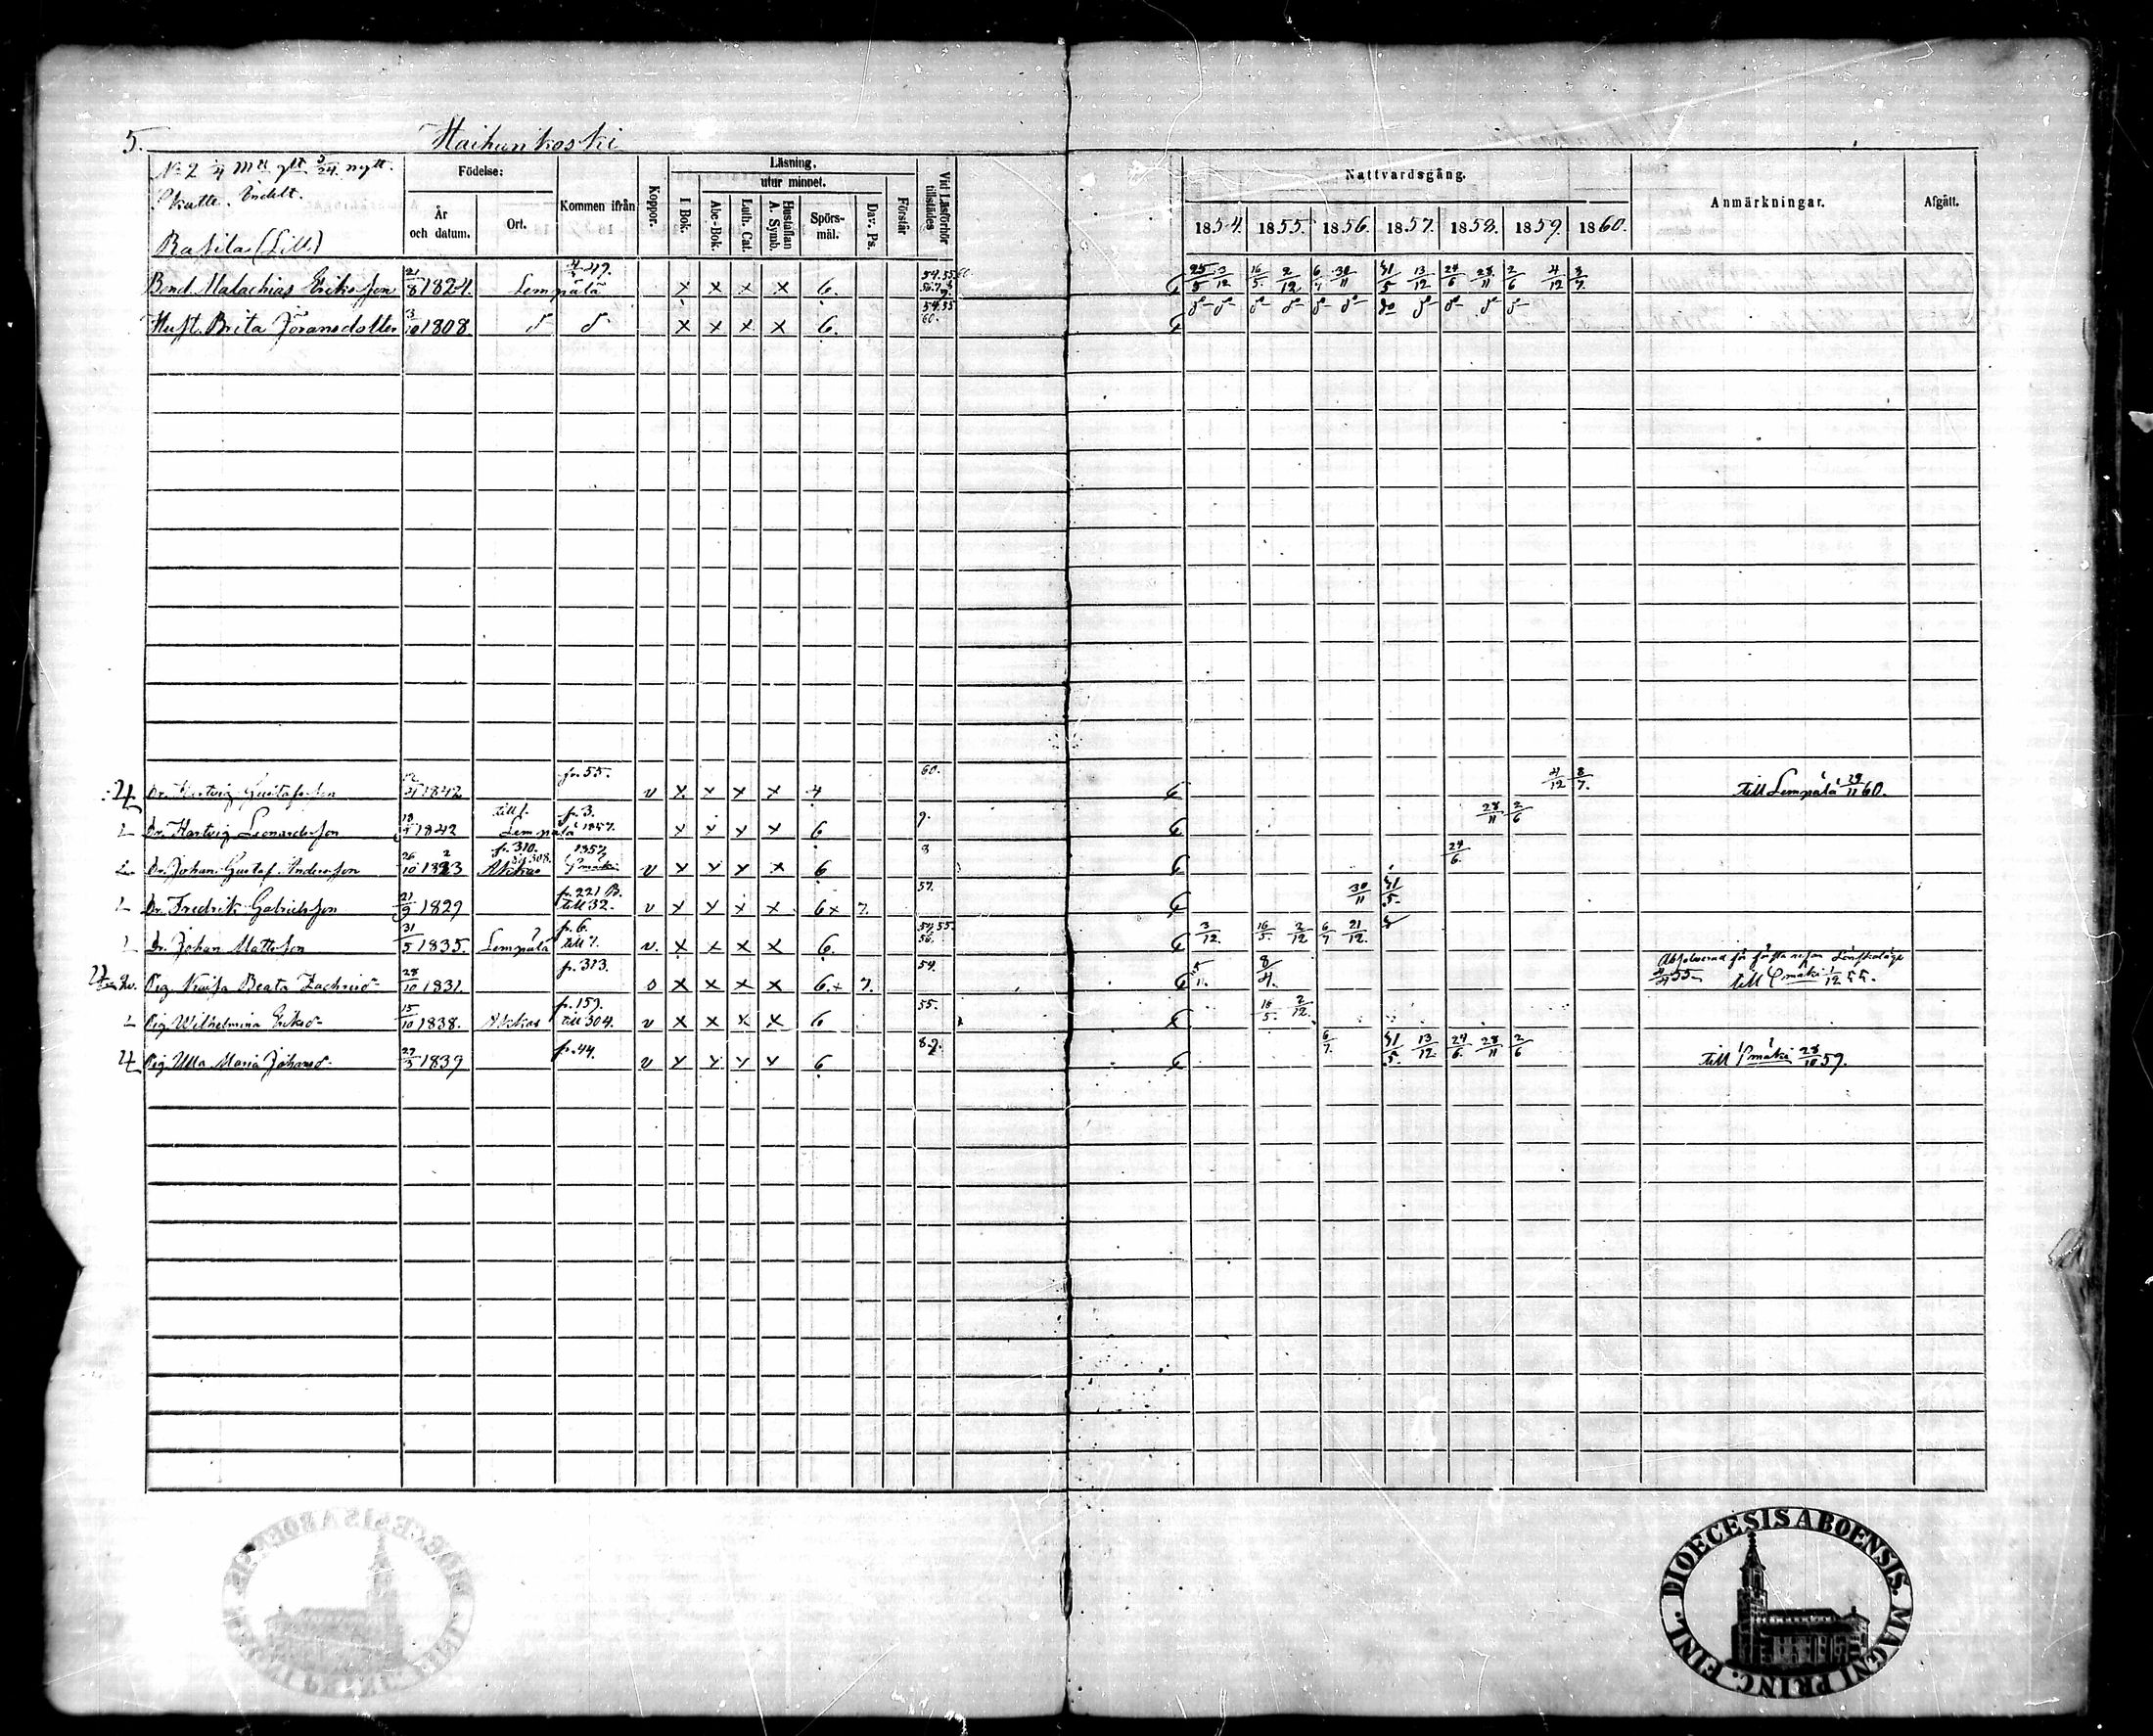 5. Haihunkoski
No 2 1/4 Mtl glt 5/24 nytt.
Skatte. Indelt.
Rasila (Lill)
Födelse:
År och datum.
Ort.
Kommen ifrån
Koppor.
Läsning.
utur minnet.
I Bok.
Abc-Bok.
Luth. Cat.
Hustaflan A. Symb.
Spörs-mål.
Dav. Ps.
Förstår
Vid Läsförhör tillstädes
Nattvardsgång.
1854. 1855. 1856. 1857. 1858. 1859. 1860.
Anmärkningar.
Afgått.
Bond. Malachias Eriksson 21/8 1824. Lempälä x x x x 6. 25/5 3/12 16/5. 2/12 6/7 30/11 31/5 13/12 24/6 28/11 2/6 4/12 8/7.
Hust. Brita Jöransdotter 3/10 1808 x x x x 6. 54.55 60.
Dr. Hartvig Gustafsson 1842 fr. 55. v x x x x 4 60. 4/12 8/7. till Lempälä 29/11 60.
Dr. Hartvig Leonardsson 1842 till Lempälä 1857. fr. 3. x x x x 6 9. 28/11 2/6
Dr. Johan Gustaf Andersson 26/10 1823 fr. 310. Akkas 1857 v x x x x 6 8 24/6.
Dr. Fredrik Gabrielsson 21/9 1829 fr. 221 B. till 32. v x x x x 6x 7. 57. 30/11 31/5.
Dr. Johan Mattsson 31/5 1835. Lempälä fr. 6. till 7. v. x x x x 6. 54.55. 56. 3/12. 16/5. 2/12 6/7 21/12.
Pig. Beata Zachrisd. 28/10 1831. fr. 313. o x x x x 6.x 7. 54. 8/4. 4/4 55. till 1/12 55.
Pig. Wilhelmina Eriksd. 15/10 1838. Akkas fr. 159. till 304. v x x x x 6 55. 16/5. 2/12.
Pig. Ulla Maria Johansd. 27/3 1839 fr. 44. v x x x x 6 8.9. 6/7. 31/5. 13/12 24/6. 28/11 2/6 till 28/10 59.
DIOECESIS ABOENSIS. MAGNI PRINC. FINL.